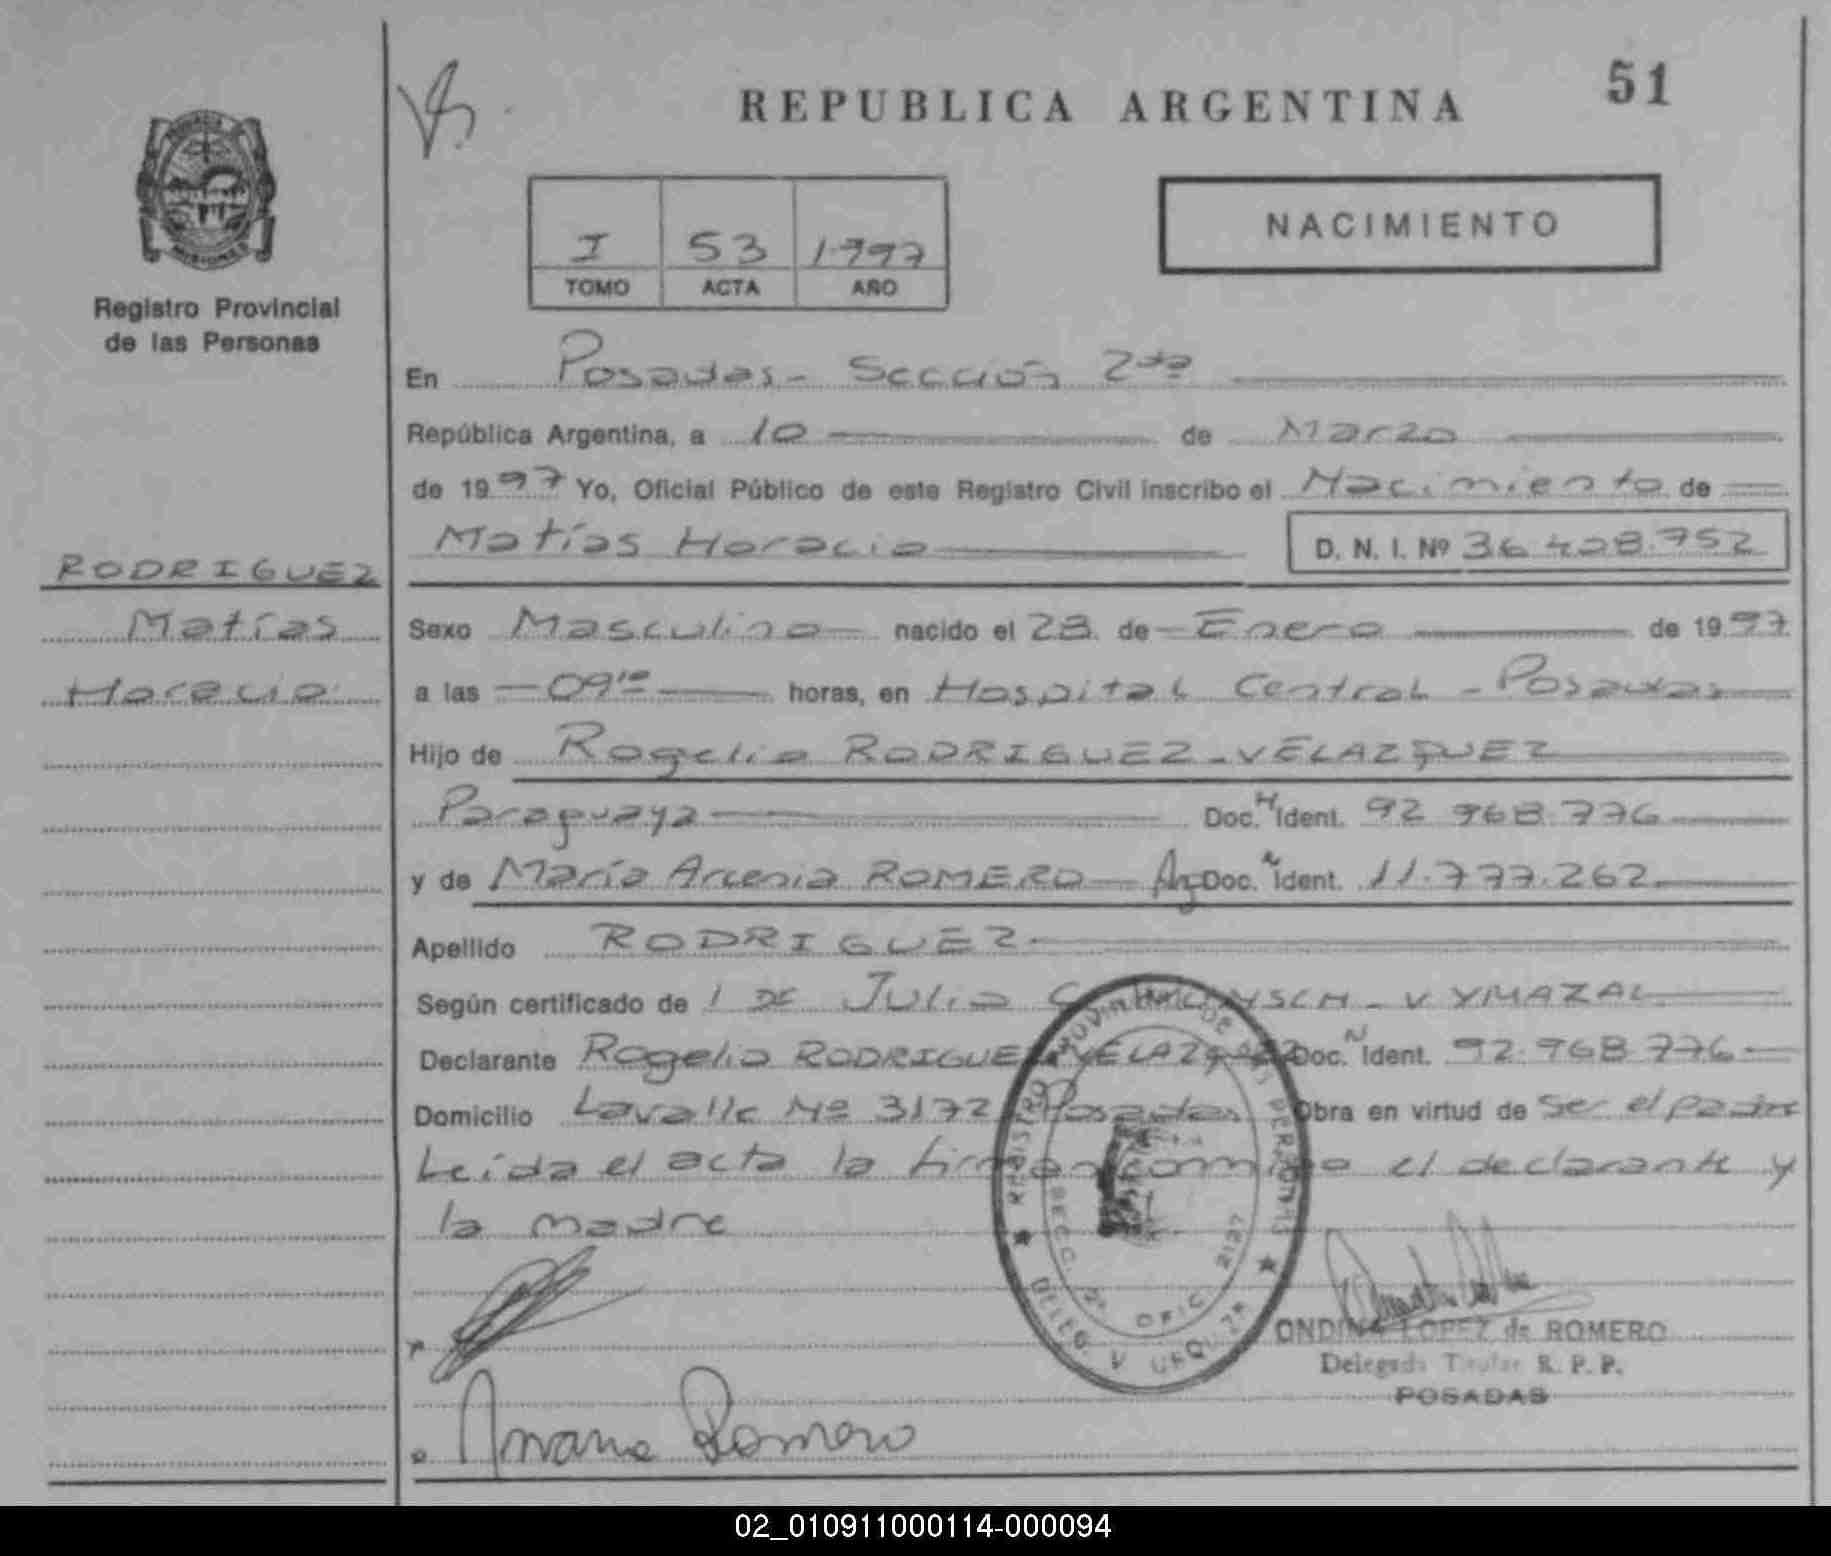 REPUBLICA ARGENTINA
51
Registro Provincial
de las Personas
I 53 1997
TOMO ACTA AÑO
NACIMIENTO
En Posadas - Sección 2da
República Argentina, a 10 de Marzo
de 1997 Yo, Oficial Público de este Registro Civil inscribo el Nacimiento de
Matías Horacio D. N. I. Nº 36.428.752
RODRIGUEZ
Matías
Horacio
Sexo Masculino nacido el 28 de Enero de 1997
a las 09 horas, en Hospital Central - Posadas
Hijo de Rogelio RODRIGUEZ - VELAZQUEZ
Paraguaya Doc. N Ident. 92 968.776
y de María Arcenia ROMERO - Arg Doc. N Ident. 11.777.262
Apellido RODRIGUEZ
Según certificado de 1 DE Julio VYMAZAL
Declarante Rogelio RODRIGUEZ VELAZQUEZ Doc. N Ident. 92.968.776
Domicilio Lavalle Nº 3172 Posadas Obra en virtud de ser el padre
Leída el acta la firman conmigo el declarante y
la madre
REGISTRO PROVINCIAL DE LAS PERSONAS
SECC. 2ª OFIC. 2127
DELEG. V URQUIZA
ONDINA LOPEZ de ROMERO
Delegada Titular R. P. P.
POSADAS
Romero
02_010911000114-000094